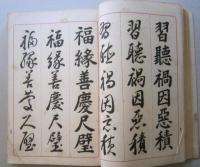 習聽禍因惡積
習聽禍因惡積
福緣善慶尺璧
福緣善慶尺璧